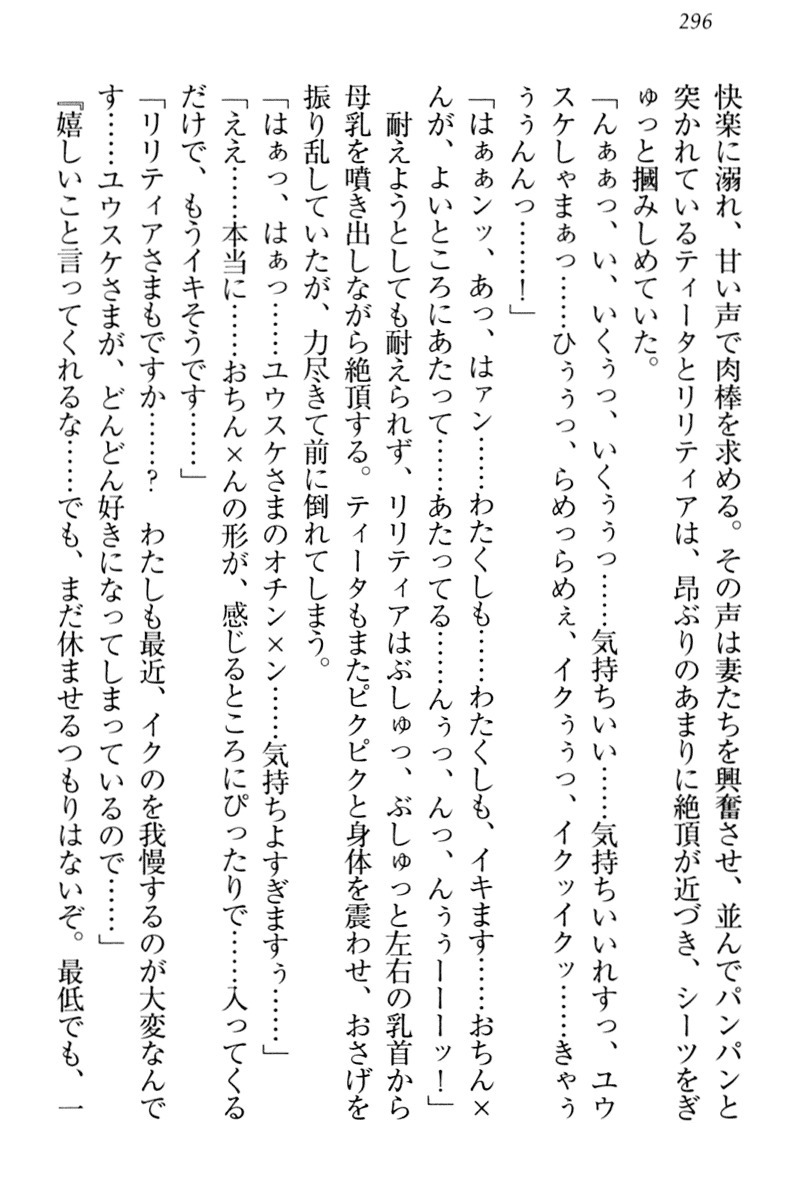 296
快楽に溺れ、甘い声で肉棒を求める。その声は妻たちを興奮させ、並んでパンパンと
突かれているティータとリリティアは、昂ぶりのあまりに絶頂が近づき、シーツをぎ
ゅっと摑みしめていた。
「んぁぁっ、い、いくぅっ、いくぅぅっ……気持ちいい……気持ちいいれすっ、ユウ
スケしゃまぁっ……ひぅぅっ、らめっらめぇ、イクぅぅっ、イクッイクッ……きゃぅ
ぅぅんんっ……！」
「はぁぁンッ、あっ、はァン……わたくしも……わたくしも、イキます……おちん×
んが、よいところにあたって……あたってる……んぅっ、んっ、んぅぅーーーッ！」
　耐えようとしても耐えられず、リリティアはぶしゅっ、ぶしゅっと左右の乳首から
母乳を噴き出しながら絶頂する。ティータもまたピクピクと身体を震わせ、おさげを
振り乱していたが、力尽きて前に倒れてしまう。
「はぁっ、はぁっ……ユウスケさまのオチン×ン……気持ちよすぎますぅ……」
「ええ……本当に……おちん×んの形が、感じるところにぴったりで……入ってくる
だけで、もうイキそうです……」
「リリティアさまもですか……？　わたしも最近、イクのを我慢するのが大変なんで
す……ユウスケさまが、どんどん好きになってしまっているので……」
『嬉しいこと言ってくれるな……でも、まだ休ませるつもりはないぞ。最低でも、一